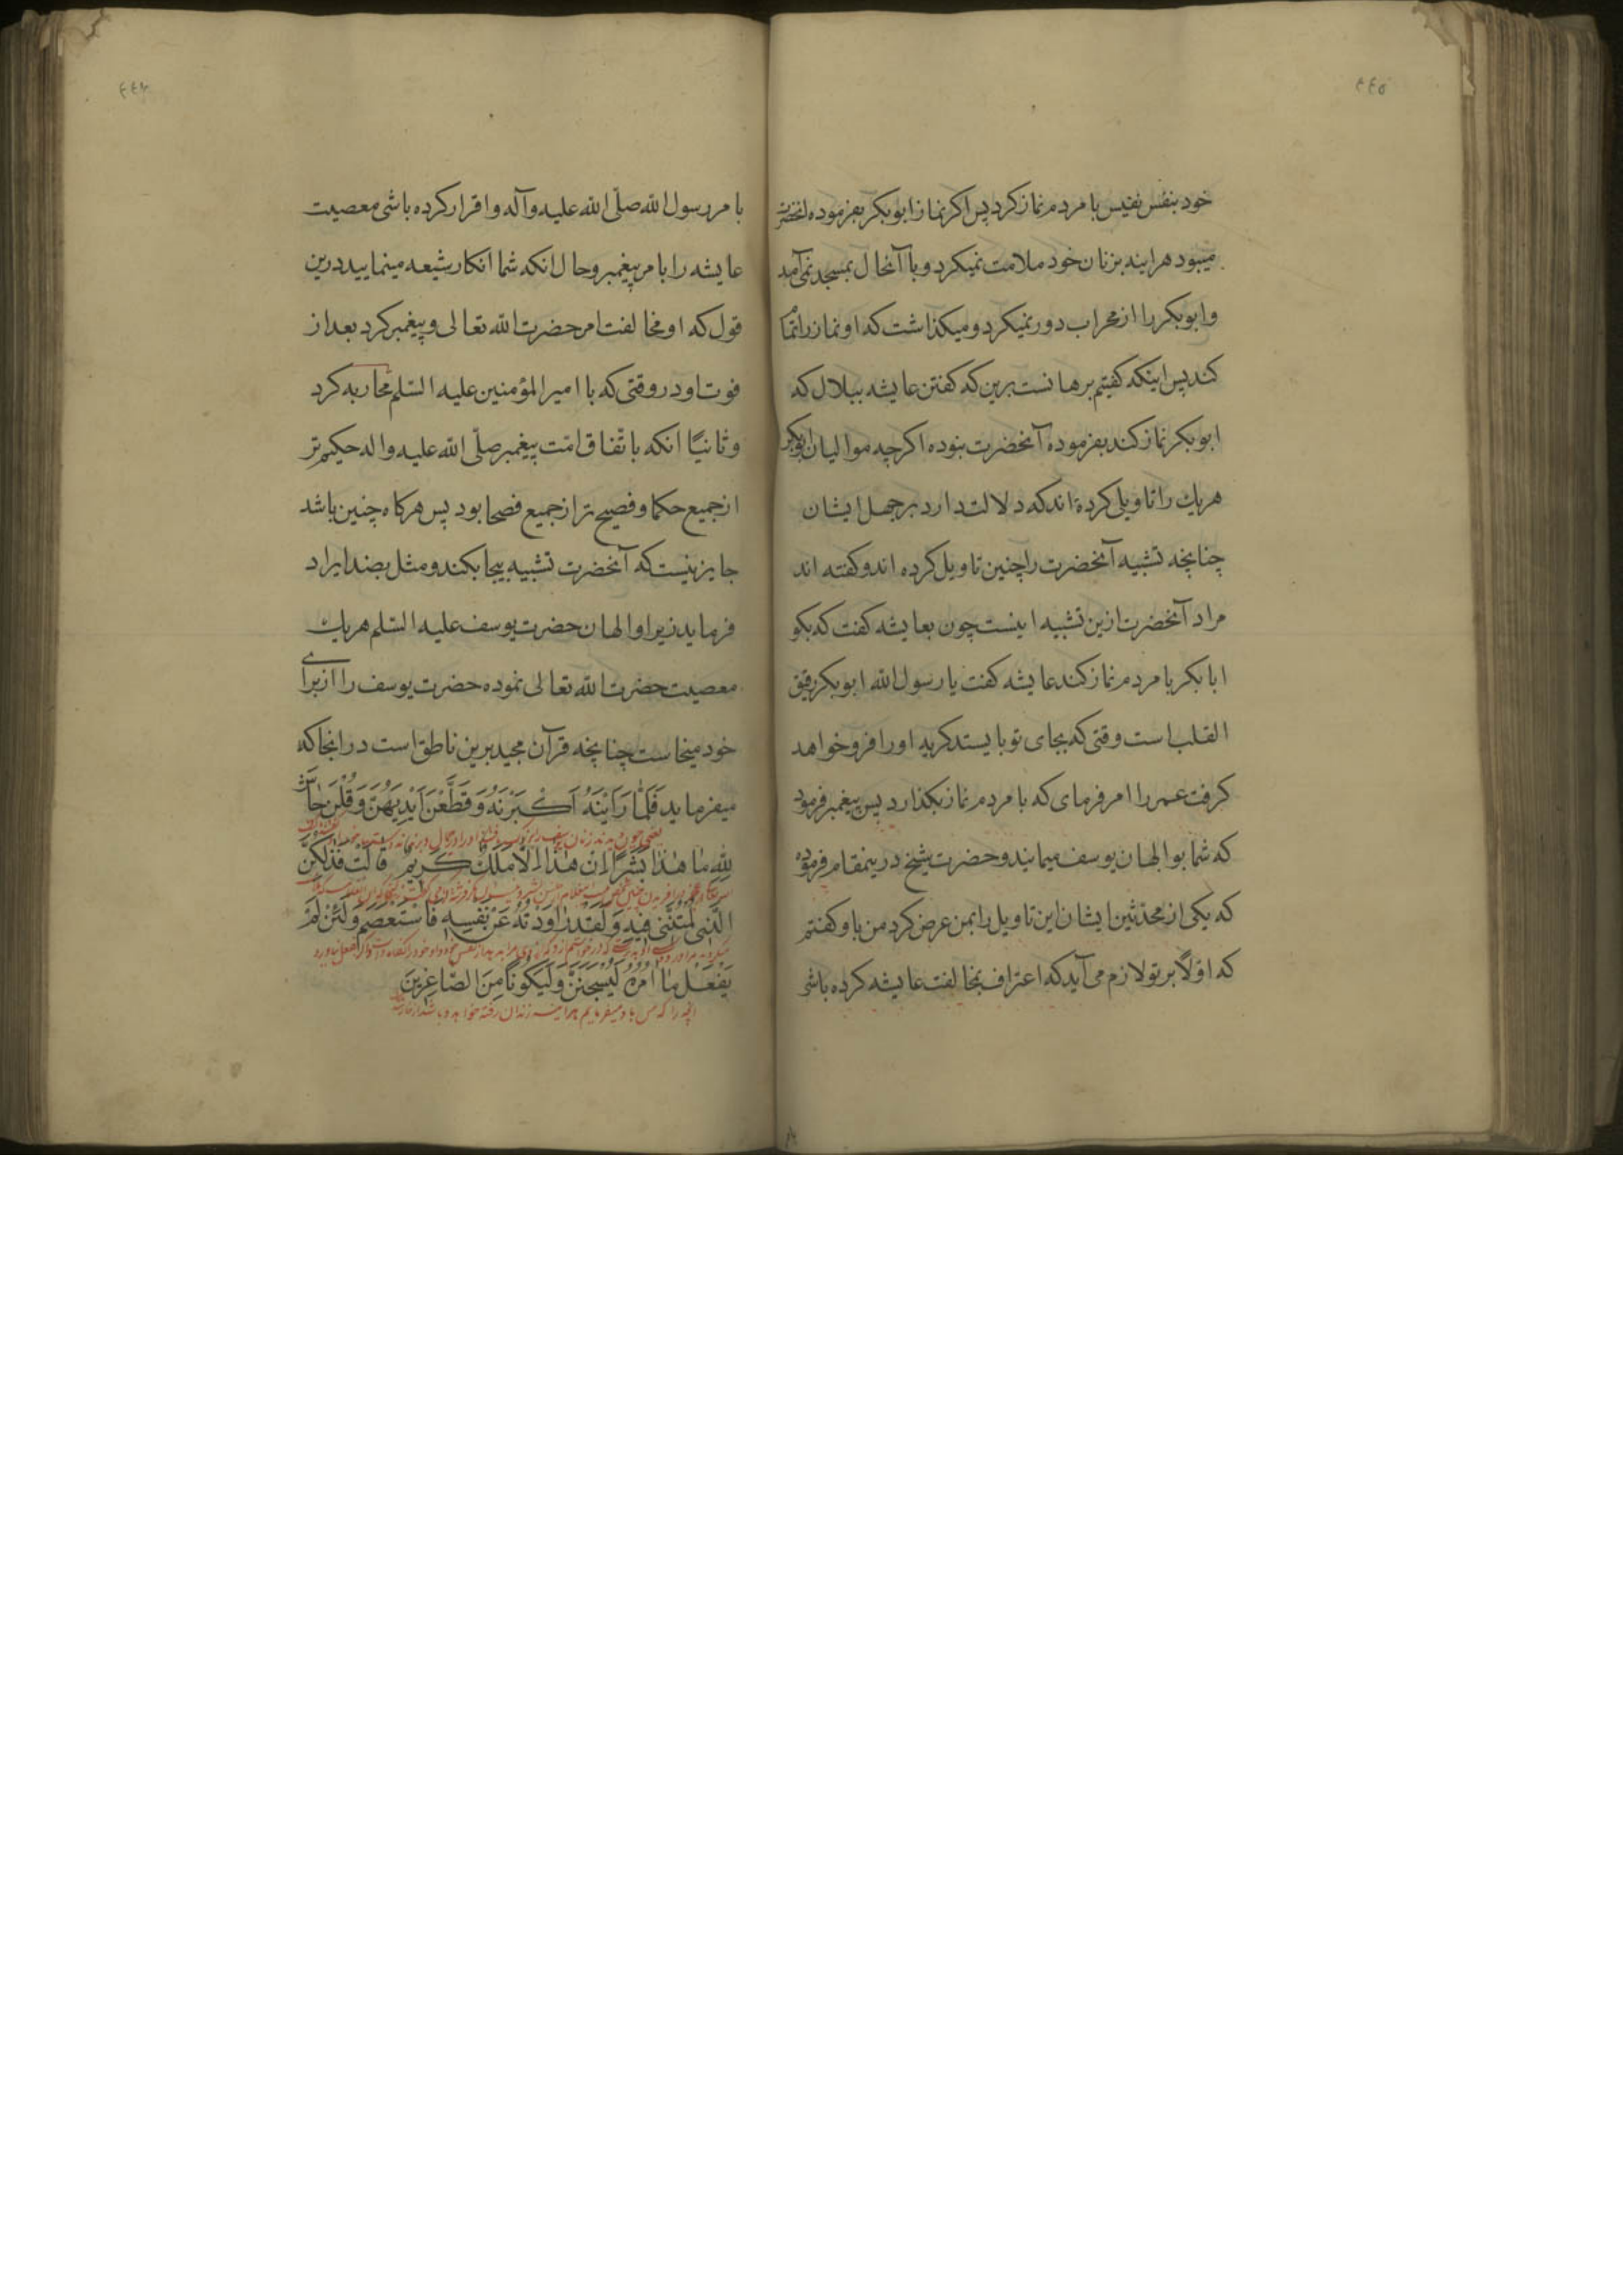 ٤٤٥
خود بنفس نفیس با مردم نماز کرد پس اکر نماز ابوبکر بفرموده انحضرت
میبود هراینه بزنان خود ملامت نمیکرد و با آنحال بمسجد نمی آمد
و ابوبکر را از محراب دور نمیکرد و میکذاشت که او نماز را تمام
کند پس اینکه کفتیم برهانست برین که کفتن عایشه ببلال که
ابوبکر نماز کند بفرموده آنحضرت نبوده اکرچه موالیان ابوبکر
هریك را تاویلی کرده اند که دلالت دارد بر جهل ایشان
چنانچه تشبیه آنحضرت را چنین تاویل کرده اند و کفته اند
مراد آنحضرت ازین تشبیه اینست چون بعایشه کفت که بکو
ابا بکر با مردم نماز کند عایشه کفت یا رسول الله ابوبکر رقیق
القلب است وقتی که بجای تو بایستد کریه او را فرو خواهد
کرفت عمر را امر فرمای که با مردم نماز بکذارد پس پیغمبر فرمود
که شما بوالهان یوسف میمانید و حضرت شیخ درینمقام فرموده
که یکی از محدثین ایشان این تاویل را بمن عرض کرد من باو کفتم
که اوّلاً بر تو لازم می آید که اعتراف بمخالفت عایشه کرده باشی
٤٤٦
بامر رسول الله صلّی الله علیه وآله و اقرار کرده باشی معصیت
عایشه را بامر پیغمبر وحال انکه شما انکار شیعه مینمایید درین
قول که او مخالفت امر حضرت الله تعالی و پیغمبر کرد بعد از
فوت او در وقتی که با امیر المؤمنین علیه السّلم محاربه کرد
وثانیًا انکه باتّفاق امّت پیغمبر صلّی الله علیه واله حکیم تر
از جمیع حکما و فصیح تر از جمیع فصحا بود پس هرکاه چنین باشد
جایز نیست که آنحضرت تشبیه بیجا بکند و مثل بضد ایراد
فرماید زیرا والهان حضرت یوسف علیه السّلم هریك
معصیت حضرت الله تعالی نموده حضرت یوسف را از برای
خود میخاست چنانچه قرآن مجید برین ناطق است در انجا که
میفرماید فَلَمَّا رَاَيْنَهُ اَكْبَرْنَهُ وَقَطَّعْنَ اَيْدِيَهُنَّ وَقُلْنَ حَاشَ
لِلّٰهِ مَا هٰذَا بَشَرًا اِنْ هٰذَا اِلَّا مَلَكٌ كَرِيمٌ قَالَتْ فَذٰلِكُنَّ
الَّذِي لُمْتُنَّنِي فِيهِ وَلَقَدْ رَاوَدْتُهُ عَنْ نَفْسِهِ فَاسْتَعْصَمَ وَلَئِنْ لَمْ
يَفْعَلْ مَا اٰمُرُهُ لَيُسْجَنَنَّ وَلَيَكُونًا مِنَ الصَّاغِرِينَ
انچه را که من باو میفرمایم هراینه زندان رفته خواهد